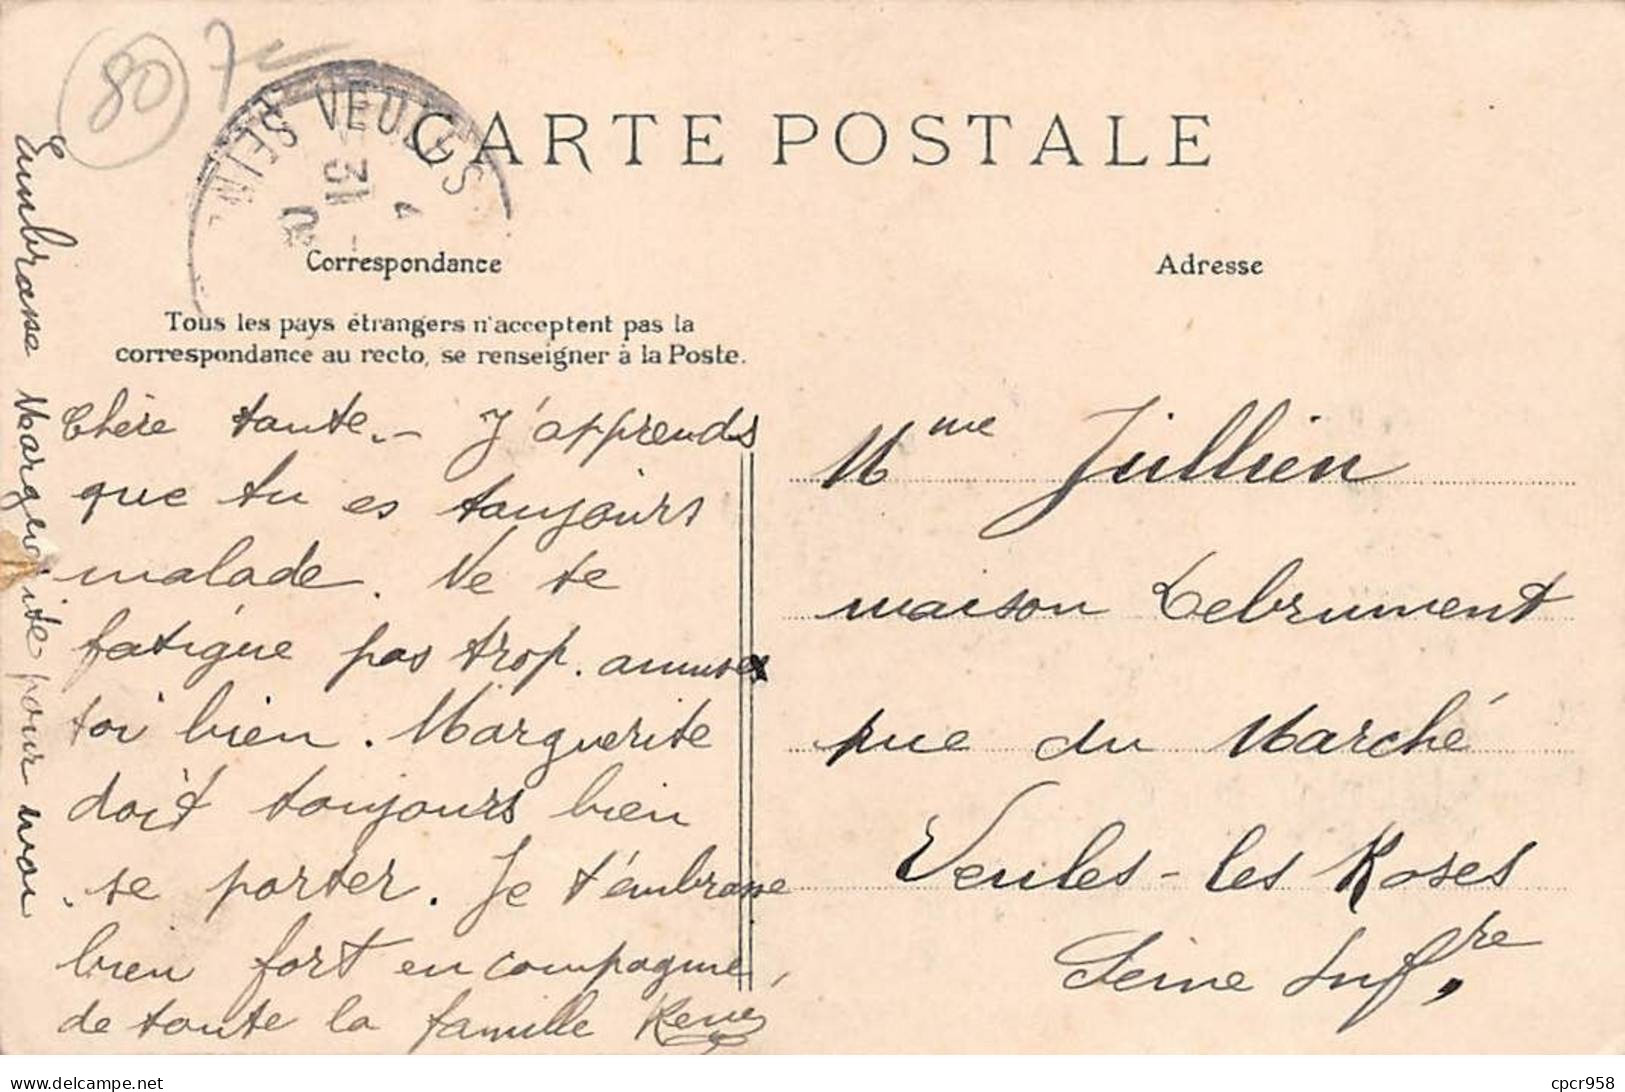 80
VEULES
SEIN
31
CARTE POSTALE
Correspondance
Adresse
Tous les pays étrangers n'acceptent pas la
correspondance au recto, se renseigner à la Poste.
Chère tante.- J'apprends
que tu es toujours
malade. Ne te
fatigue pas trop. amuse
toi bien. Marguerite
doit toujours bien
se porter. Je t'embrasse
bien fort en compagnie
de toute la famille René
Embrasse Marguerite pour moi
Mme Jullien
maison Lebrument
rue du Marché
Veules-les Roses
Seine Infre
delcampe.net
cpcr958